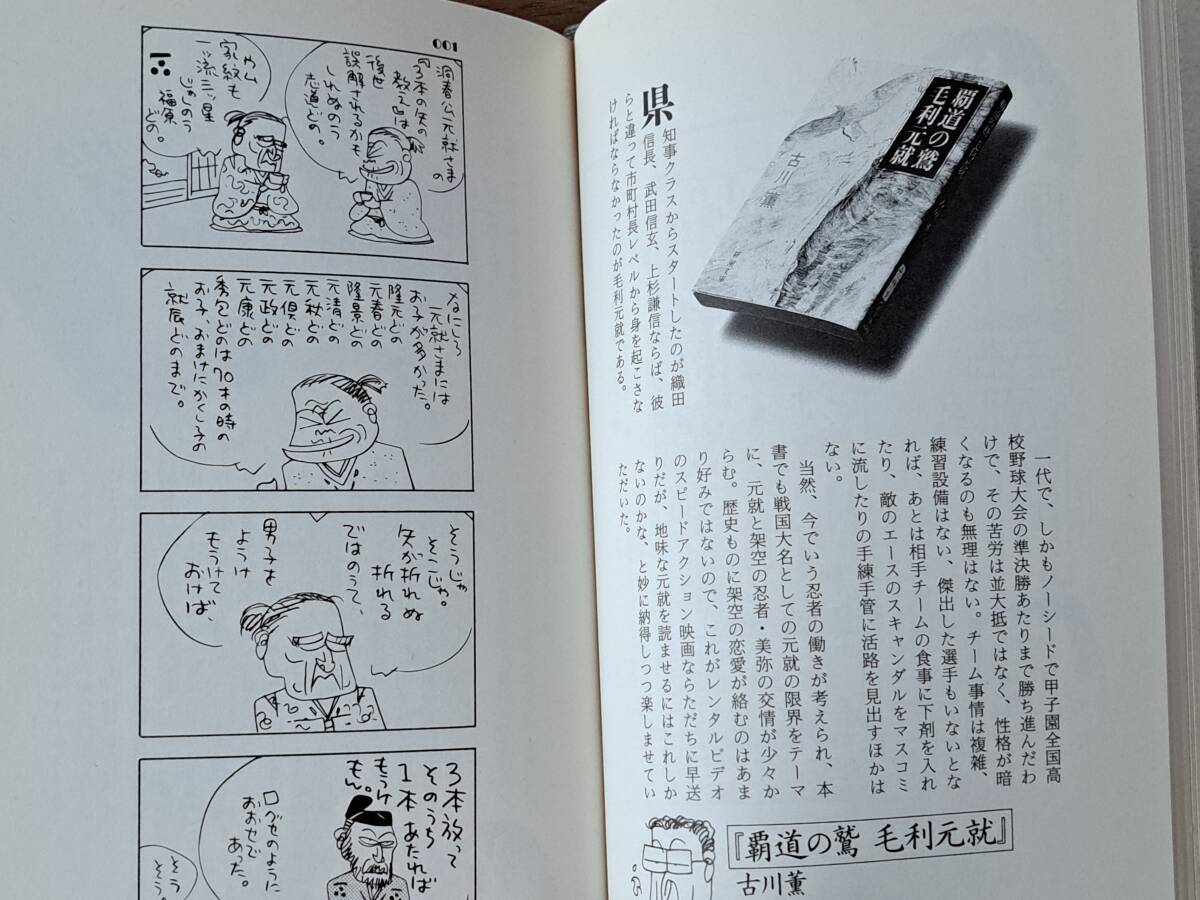 覇道の鷲
毛利元就
古川薫
県知事クラスからスタートしたのが織田
信長、武田信玄、上杉謙信ならば、彼
らと違って市町村長レベルから身を起こさな
ければならなかったのが毛利元就である。
一代で、しかもノーシードで甲子園全国高
校野球大会の準決勝あたりまで勝ち進んだわ
けで、その苦労は並大抵ではなく、性格が暗
くなるのも無理はない。チーム事情は複雑、
練習設備はない、傑出した選手もいないとな
れば、あとは相手チームの食事に下剤を入れ
たり、敵のエースのスキャンダルをマスコミ
に流したりの手練手管に活路を見出すほかは
ない。
当然、今でいう忍者の働きが考えられ、本
書でも戦国大名としての元就の限界をテーマ
に、元就と架空の忍者・美弥の交情が少々か
らむ。歴史ものに架空の恋愛が絡むのはあま
り好みではないので、これがレンタルビデオ
のスピードアクション映画ならただちに早送
りだが、地味な元就を読ませるにはこれしか
ないのかな、と妙に納得しつつ楽しませてい
ただいた。
『覇道の鷲 毛利元就』
古川薫
001
洞春公元就さまの
『3本の矢の
教え』は
後世
誤解されるかも
しれぬのう
志道どの。
ウム
家紋も
一ッ流三ッ星
じゃしのう
福原
どの。
なにしろ
元就さまには
お子が多かった。
隆元どの
元春どの
隆景どの
元清どの
元秋どの
元倶どの
元政どの
元康どの
秀包どのは70才の時の
お子、おまけにかくし子の
就辰どのまで。
そうじゃ
そこじゃ。
矢が折れぬ
折れる
ではのうて、
男子を
ようけ
もうけて
おけば、
3本放って
そのうち
1本あたれば
もうけ
もん。
口グセのように
おおせで
あった。
そう
そう